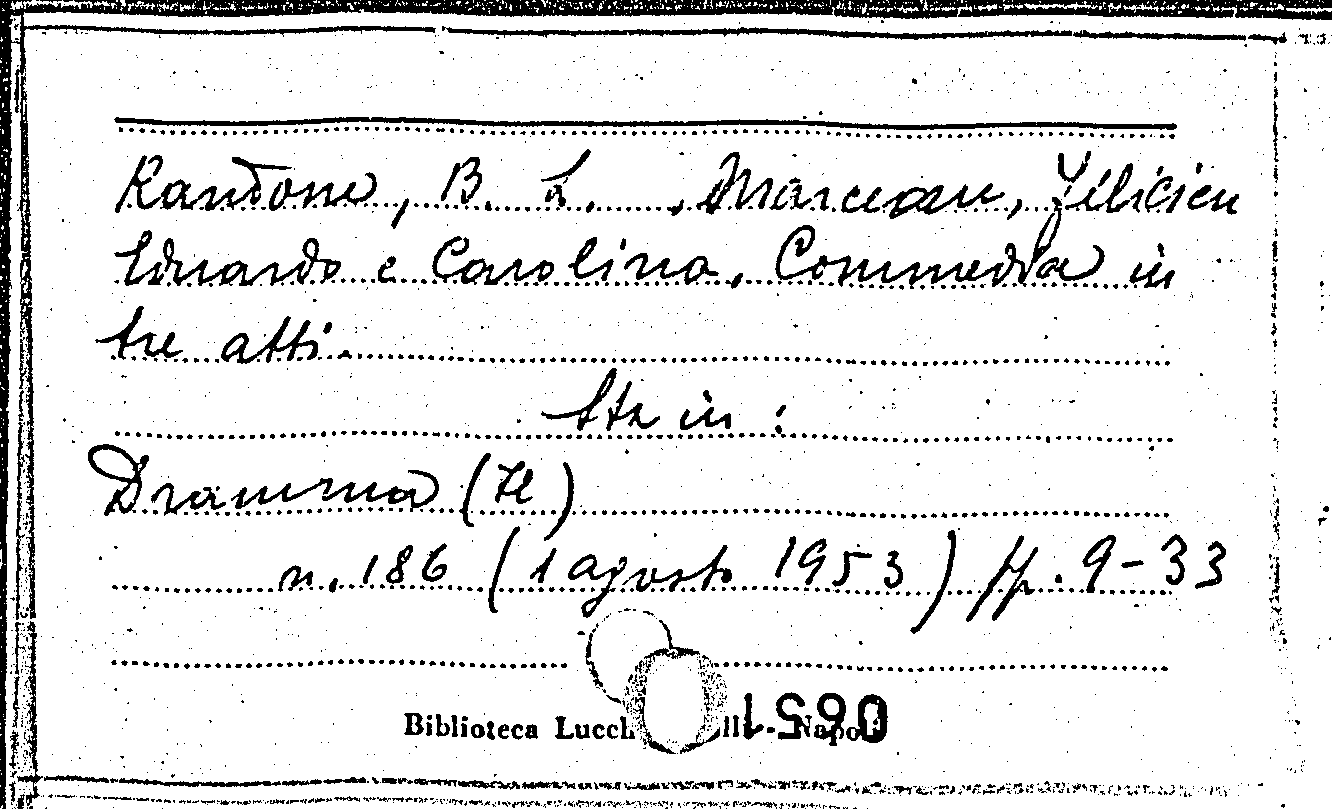 Randone, B. L. , Marceau, Félicien
Eduardo e Carolina, Commedia in
tre atti.
Sta in :
Dramma (Il)
n. 186 (1 agosto 1953) pp. 9-33
Biblioteca